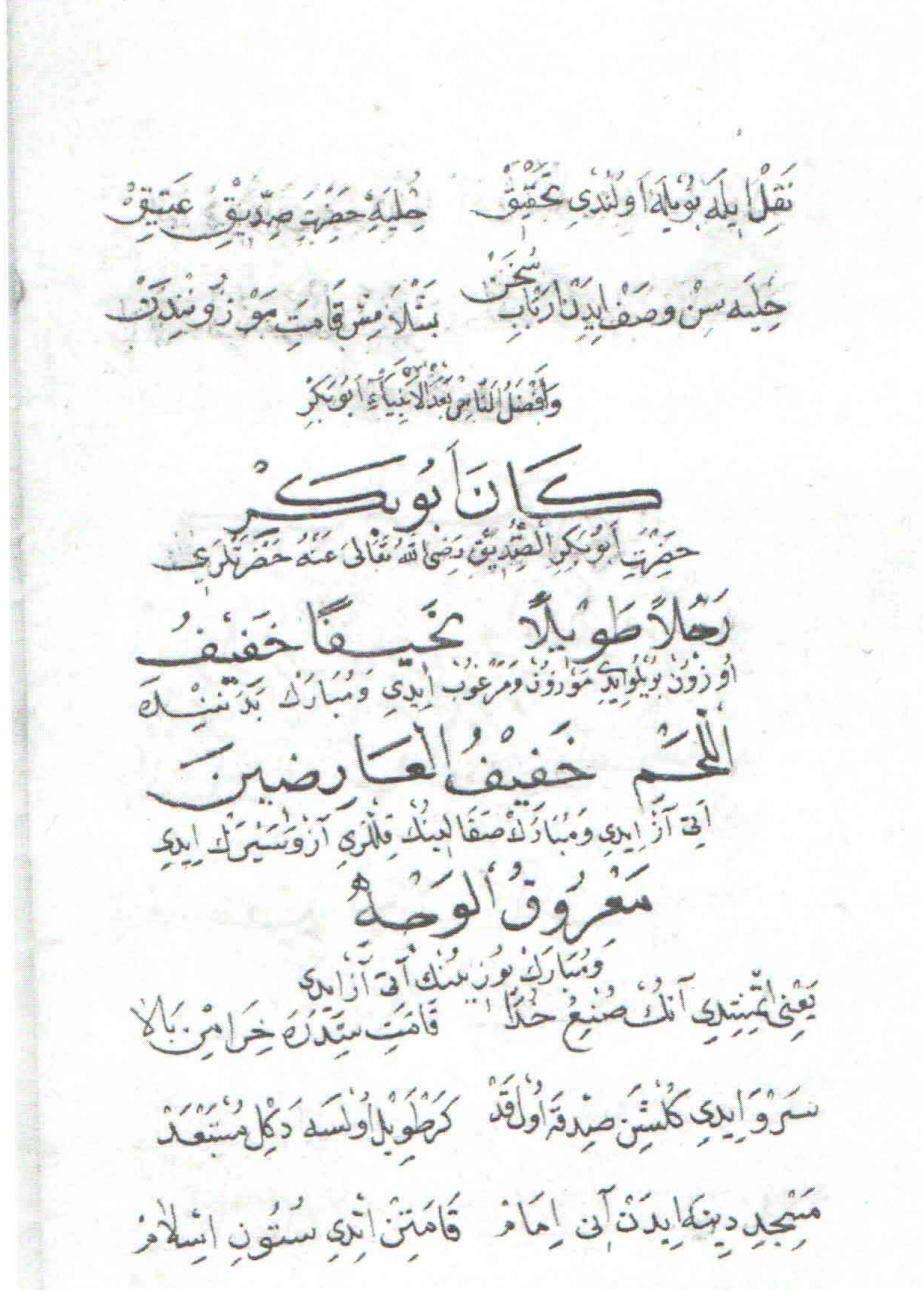 نَقِلْ ايلَه بُويلَه اَولُندِى تَحْقِيقْ حُلْيَهٔ حَضْرَتِ صِدِّيقِ عَتِيقْ
حِلْيَه سِنْ وصَفْ ايدَنْ اَرْبَابِ سُخَنْ بَشْلَامِشْ قَامَتِ مَوْزُونِنْدَنْ
وَاَفْضَلُ النَّاسِ بَعْدَ الْاَنْبِيَآءِ اَبُو بَكْرِ
كَانَ اَبُو بَكْرٍ
حضرتِ اَبُو بَكْرِ الصِّدِّيقْ رَضِىَ اللّٰهُ تَعَالىَ عَنْهُ حَضْرَتْلَرِى
رَجُلاً طَوِيلًا نَحِيفًا خَفِيفُ
اُوزُونْ بُويْلُو ايدِى مَوْزُونْ وَمَرْغُوبْ اِيدِي وَمُبَارَكْ بَدَنِنْدَه
اللَّحْمِ خَفِيْفُ الْعَارِضَيْنَ
اَتِى آزْ اِيدِي وَمُبَارَكْ صَقَالِينُكْ قِلْلَرِي آزْ وَسَيْرَكْ اِيدِي
مَعْرُوقُ الْوَجْهِ
وَمُبَارَكْ يُوزِينُنْكْ اَتِى آزْ ايدِي
يَعْنِى اِتْمِشْتِدِي آنُكْ صُنْعِ خُدَا قَامَتِ سِدْرَه خِرَامِنْ بَالَا
سَرْوَ ايدِي كُلْشَنِ صِدْقَه اُولْ قَدْ كَرْ طَوِيلْ اُولْسَه دَكِلْ مُسْتَبْعَدْ
مَسْجِدِ دِينَه ايدَنْ آنِى اِمَامْ قَامَتِنْ اِتْدِي سُتُونِ اِسْلَامْ